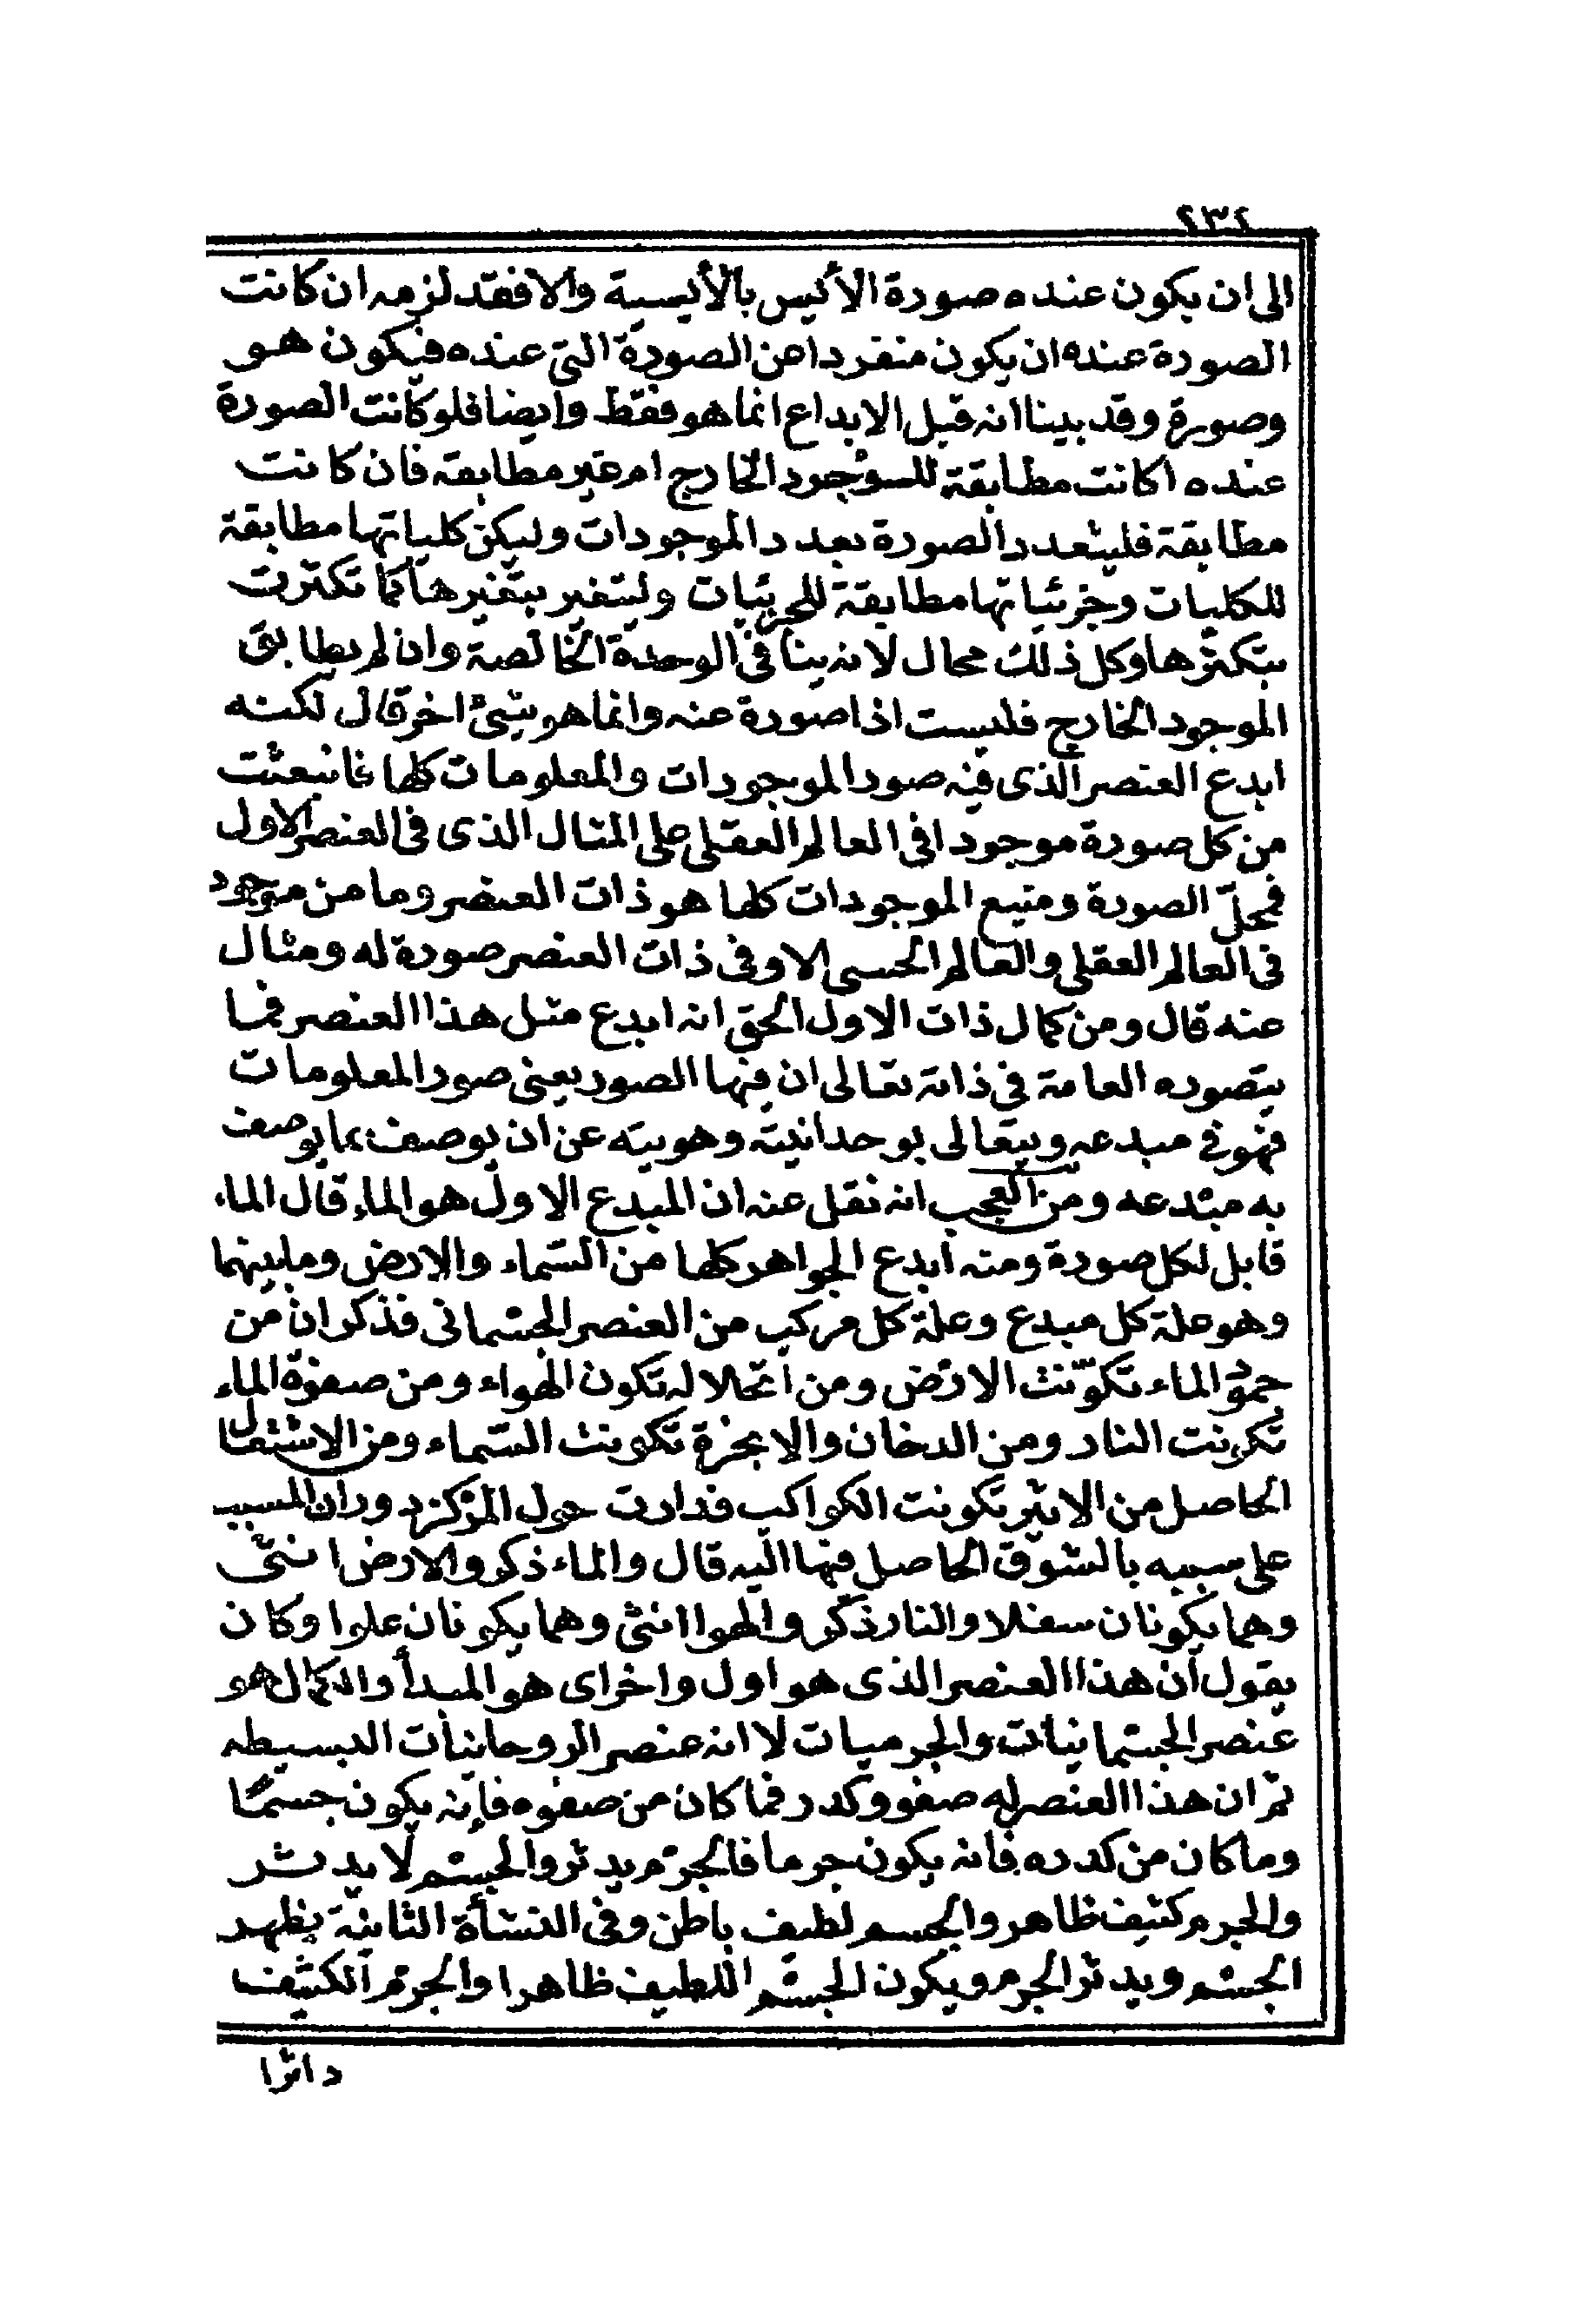 ٢٣٤
الى ان يكون عنده صورة الأيس بالأيسية والا فقد لزمه ان كانت
الصورة عنده ان يكون منفردا عن الصورة التي عنده فيكون هو
وصورة وقد بينا انه قبل الابداع انما هو فقط وايضا فلو كانت الصورة
عنده اكانت مطابقة للموجود الخارج ام غير مطابقة فان كانت
مطابقة فليتعدد الصورة بعدد الموجودات وليكن كلياتها مطابقة
للكليات وجزئياتها مطابقة للجزئيات وليتغير بتغيرها كما تكثرت
بتكثرها وكل ذلك محال لانه ينافي الوحدة الخالصة وان لم يطابق
الموجود الخارج فليست اذا صورة عنه وانما هو شئ اخر قال لكنه
ابدع العنصر الذى فيه صور الموجودات والمعلومات كلها فانبعثت
من كل صورة موجود افى العالم العقلى على المثال الذى فى العنصر الاول
فمحلّ الصورة ومنبع الموجودات كلها هو ذات العنصر وما من موجود
فى العالم العقلى والعالم الحسى الا وفى ذات العنصر صورة له ومثال
عنه قال ومن كمال ذات الاول الحق انه ابدع مثل هذا العنصر فما
يتصوره العامة في ذاته تعالى ان فيها الصور يعنى صور المعلومات
فهو في مبدعه ويتعالى بوحدانيته وهويته عن ان يوصف بما يوصف
به مبتدعه ومن العجب انه نقل عنه ان المبدع الاول هو الماء قال الماء
قابل لكل صورة ومنه ابدع الجواهر كلها من السّماء والارض وما بينهما
وهو علة كل مبدع وعلة كل مركب من العنصر الجسمانى فذكر ان من
جمود الماء تكوّنت الارض ومن انحلاله تكون الهواء ومن صفوة الماء
تكونت النار ومن الدخان والابخرة تكونت السّماء ومن الاشتعال
الحاصل من الاثير تكونت الكواكب فدارت حول المركز دوران المسبب
على سببه بالشوق الحاصل فيها اليه قال والماء ذكر والارض انثى
وهما يكونان سفلا والنار ذكر والهوا انثى وهما يكونان علوا وكان
يقول ان هذا العنصر الذى هو اول واخر اى هو المبدأ والكمال هو
عنصر الجسمانيات والجرميات لا انه عنصر الروحانيات البسيطه
ثمّ ان هذا العنصر له صفو وكدر فما كان من صفوه فإنه يكون جسمًا
وما كان من كدره فانه يكون جرما فالجرم يدثر والجسم لا يدثر
والجرم كثيف ظاهر والجسم لطيف باطن وفى النشأة الثانية يظهر
الجسم ويدثر الجرم ويكون الجسم اللطيف ظاهرا والجرم الكثيف
داثرا